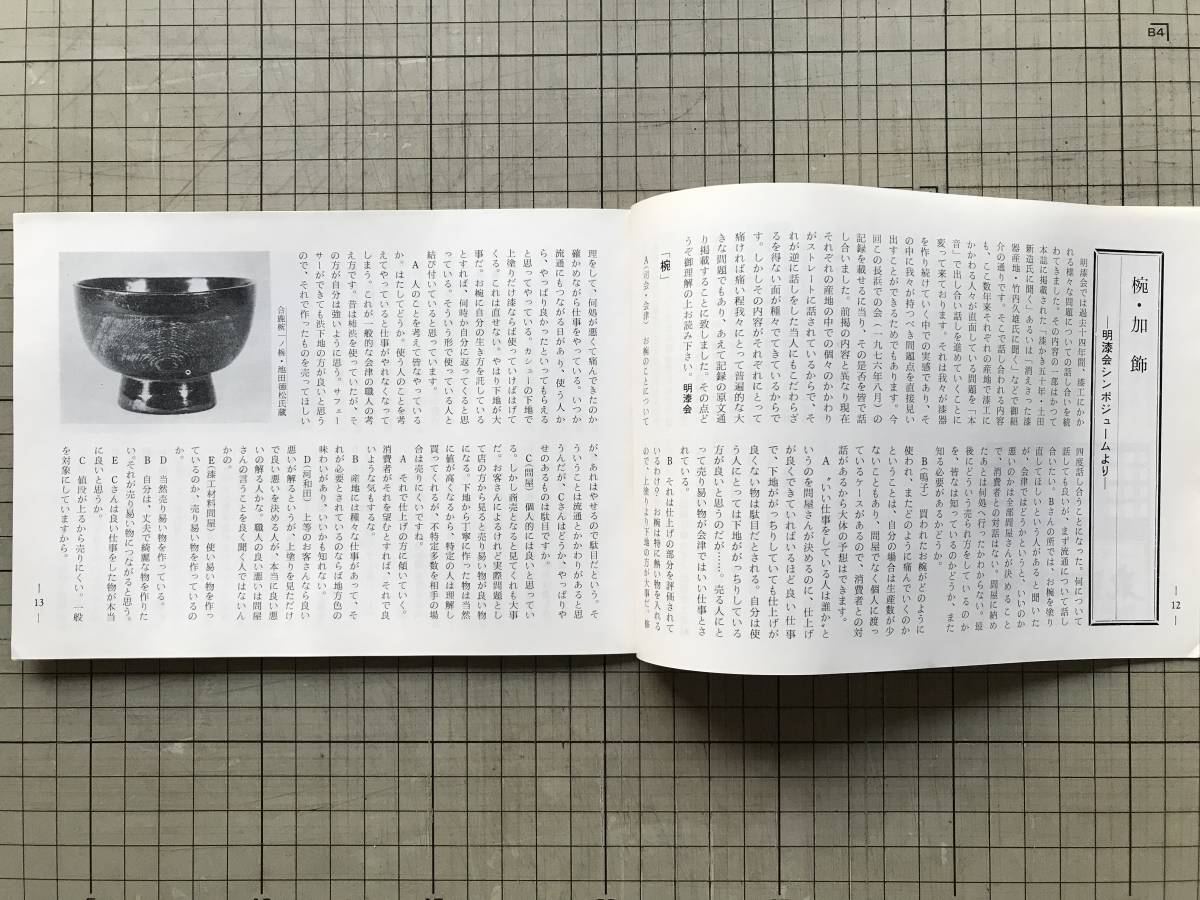 B4
椀・加飾
―明漆会シンポジュームより―
明漆会では過去十四年間、漆工にかか
れる様々な問題についての話し合いを続
わてきました。その内容の一部はかつて
本誌に掲載された「漆かき五十年・土田
新造氏に聞く」あるいは「消えさった漆
器産地・竹内久雄氏に聞く」などで御紹
介の通りです。そこで話し合われる内容
も、ここ数年来それぞれの産地で漆工に
かかわる人々が直面している問題を「本
音」で出し合い話しを進めていくことに
変って来ております。それは我々が漆器
を作り続けていく中での実感であり、そ
の中に我々が持つべき問題点を直接見い
出すことができるためでもあります。今
回この長浜での会(一九七六年八月)の
記録を載せるに当り、その是否を皆で話
し合いました。前掲の内容と異なり現在
それぞれの産地の中での個々のかかわり
がストレートに話されているからで、そ
れが逆に話しをした当人にもこだわらざ
るを得ない面が種々でてきているからで
す。しかしその内容がそれぞれにとって
痛ければ痛い程我々にとって普遍的な大
きな問題でもあり、あえて記録の原文通
り掲載することに致しました。その点ど
うぞ御理解の上お読み下さい。明漆会
「椀」
A(司会・会津) お椀のことについて
四度話し合うことになった。何について
話しても良いが、まず流通について話し
合いたい。Bさんの所では、お椀を塗り
直してほしいという人があると聞いた
が、会津ではどうかというと、いいのか
悪いのかは全部問屋さんが決めること
で、消費者との対話はない。問屋に納め
たあとは何処へ行ったかわからない。最
後にどういう売られ方をしているのか
を、皆なは知っているのかどうか、また
知る必要があるかどうか。
B(鳴子) 買われたお椀がどのように
使われ、またどのように痛んでいくのか
ということは、自分の場合は生産数が少
ないこともあり、問屋でなく個人に渡っ
ているケースがあるので、消費者との対
話があるから大体の予想はできます。
A 〝いい仕事をしている人は誰か〟と
いうのを問屋さんが決めるのに、仕上げ
が良くできていればいるほど良い仕事
で、下地ががっちりしていても仕上げが
良くない物は駄目だとされる。自分は使
う人にとっては下地ががっちりしている
方が良いと思うのだが……。売る人にと
って売り易い物が会津ではいい仕事とさ
れている。
B それは仕上げの部分を評価されて
いるわけ?お椀は特に熱い物を入れる
ので、上塗りより下地の方が大事だ。修
― 12 ―
理をして、何処が悪くて痛んできたのか
確かめながら仕事をやっている。いつか
流通にもつながる日があり、使う人か
ら、やっぱり良かったといってもらえる
と思ってやっている。カシューの下地で
上塗りだけ漆ならば使っていけばはげて
くる。これは直せない。やはり下地が大
事だ。お椀に自分の生き方を託している
とすれば、何時か自分に返ってくると思
っている。そういう形で使っている人と
結び付いていると思っています。
A 人のことを考えて皆なやっている
か。はたしてどうか。使う人のことを考
えてやっていると仕事がやれなくなって
しまう。これが一般的な会津の職人の考
え方です。昔は柿渋を使っていたが、そ
の方が自分は強いように思う。サフェー
サーができても渋下地の方が良いと思う
ので、それで作ったものを売ってほしい
合鹿椀 一ノ椀・池田徳松氏蔵
が、あれはやせるので駄目だという。そ
ういうことは流通とかかわりがあると思
うんだが、Cさんはどうか、やっぱりや
せのあるものは駄目ですか。
C(問屋) 個人的には良いと思ってい
る。しかし商売となると見てくれも大事
だ。お客さんによるけれど実際問題とし
て店の方から見ると売り易い物が良い物
になる。下地から丁寧に作った物は当然
に値が高くなるから、特定の人は理解し
買ってくれるが、不特定多数を相手の場
合は売りにくいですね。
A それで仕上げの方に傾いていく。
消費者がそれを望むとすれば、それで良
いような気もするな。
B 産地には種々な仕事があって、そ
れが必要とされているのならば地方色の
味わいがあり、いいかも知れない。
D(河和田) 上等のお客さんなら良い
悪いが解るというか、上塗りを見ただけ
で良い悪いを決める人が、本当に良い悪
いの解る人かな。職人の良い悪いは問屋
さんの言うことを良く聞く人ではないん
かの。
E(漆工材料問屋) 使い易い物を作っ
ているのか、売り易い物を作っているの
か。
D 当然売り易い物を作っている。
B 自分は、丈夫で綺麗な物を作りた
い。それが売り易い物につながると思う。
E Cさんは良い仕事をした物が本当
に良いと思うか。
C 値段が上るから売りにくい。一般
を対象にしていますから。
― 13 ―